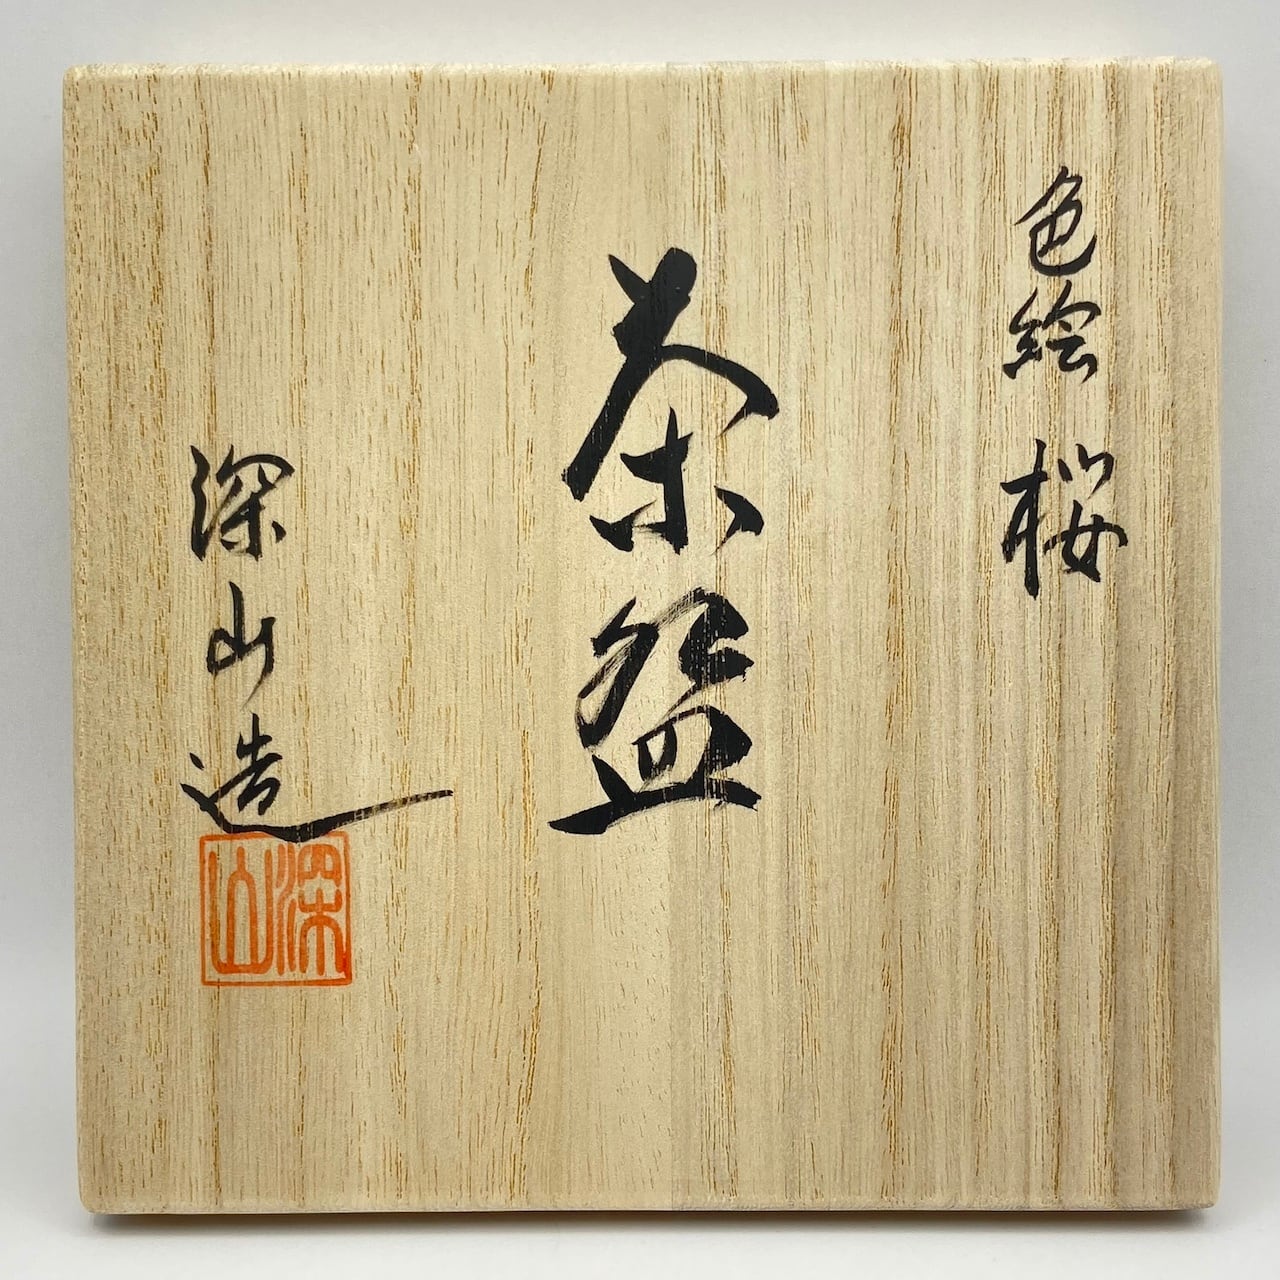 色絵 桜
茶盌
深山造
深山